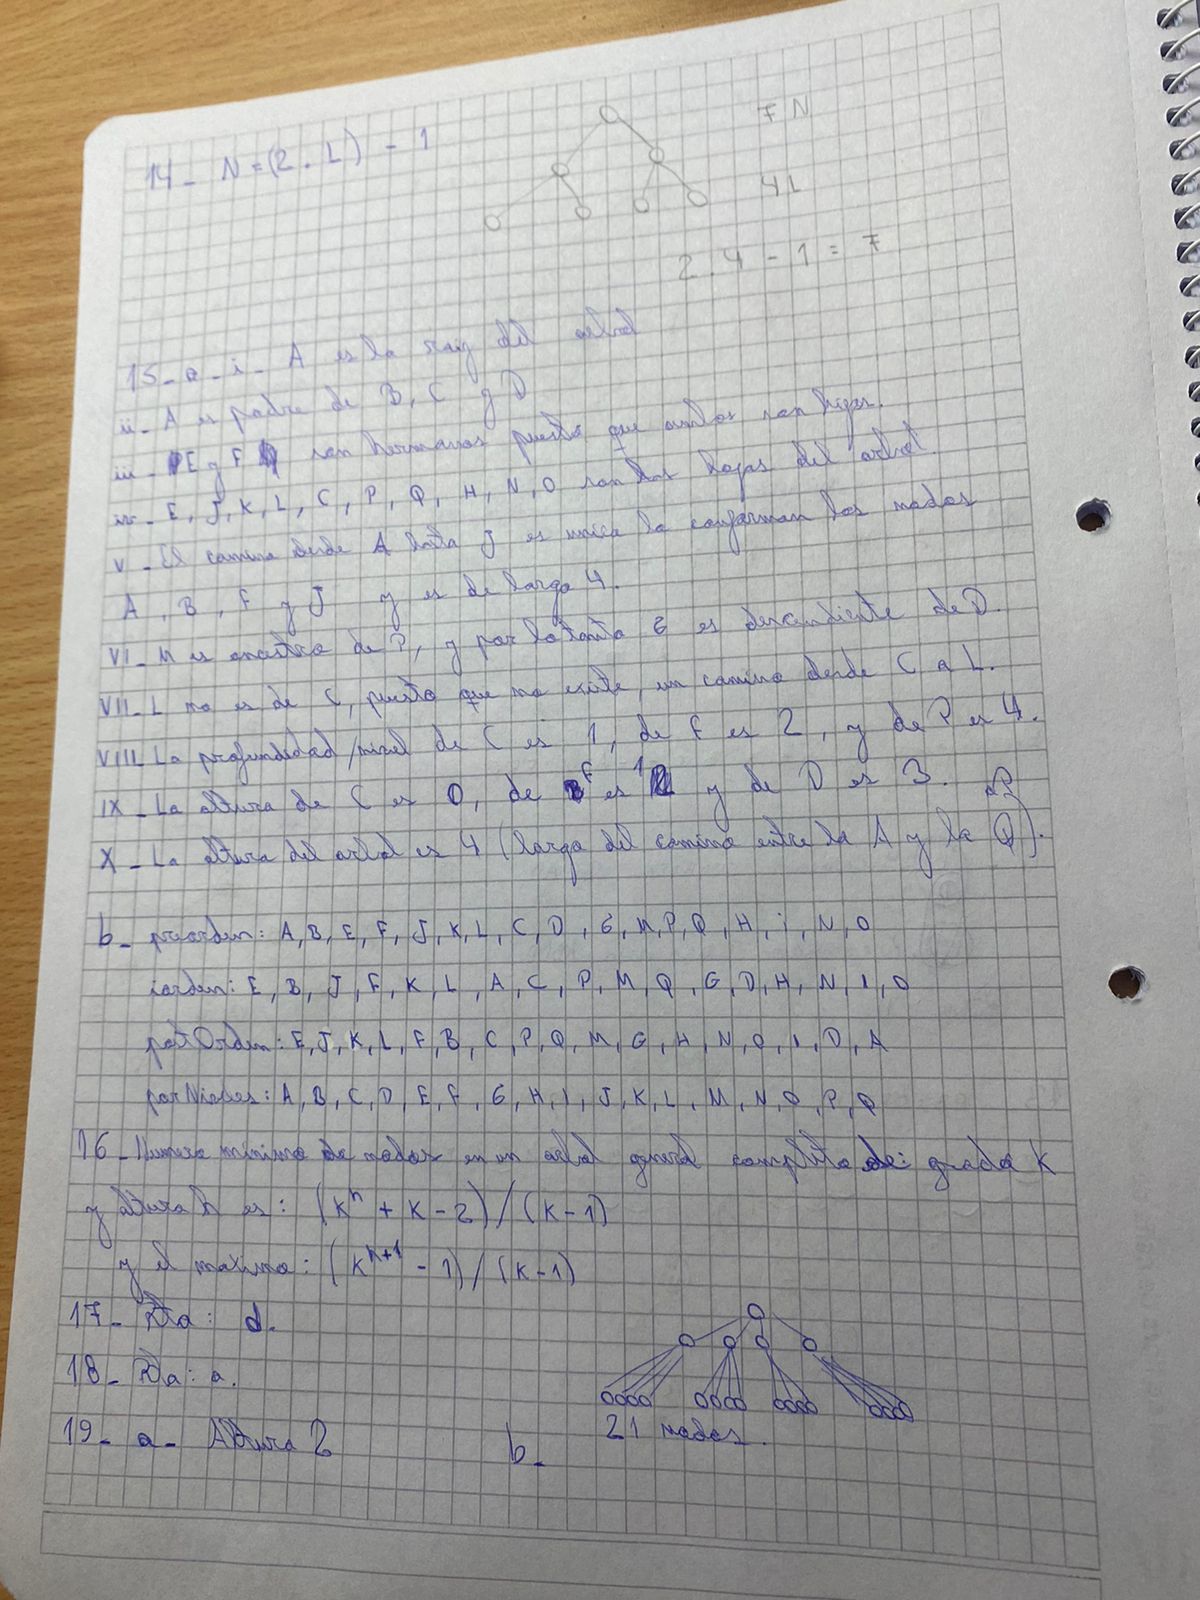 14- N = (2 . L) - 1
7 N
4 L
2 . 4 - 1 = 7
15- a- i- A es la raiz del arbol
ii- A es padre de B, C y D
iii- E y F son hermanos puesto que ambos son hijos.
iv- E, J, K, L, C, P, Q, H, N, O son las hojas del arbol.
v- El camino desde A hasta J es unico lo conforman los nodos
A, B, F y J y es de largo 4.
VI- M es ancestro de P, y por lo tanto G es descendiente de D.
VII- L no es de C, puesto que no existe, un camino desde C a L.
VIII- La profundidad/nivel de C es 1, de F es 2, y de P es 4.
IX- La altura de C es 0, de F es 1 y de D es 3.
X- La altura del arbol es 4 (largo del camino entre la A y la Q).
P
b- preorden: A, B, E, F, J, K, L, C, D, G, M, P, Q, H, i, N, O
inorden: E, B, J, F, K, L, A, C, P, M, Q, G, D, H, N, I, O
postOrden: E, J, K, L, F, B, C, P, Q, M, G, H, N, O, I, D, A
porNiveles: A, B, C, D, E, F, G, H, I, J, K, L, M, N, O, P, Q
16- Numero minimo de nodos en un arbol general completo de: grado K
y altura h es: (K^h + K - 2) / (K - 1)
y el maximo: (K^h+1 - 1) / (K - 1)
17- Rta: d.
18- Rta: a.
19- a- Altura 2
b- 21 nodos.